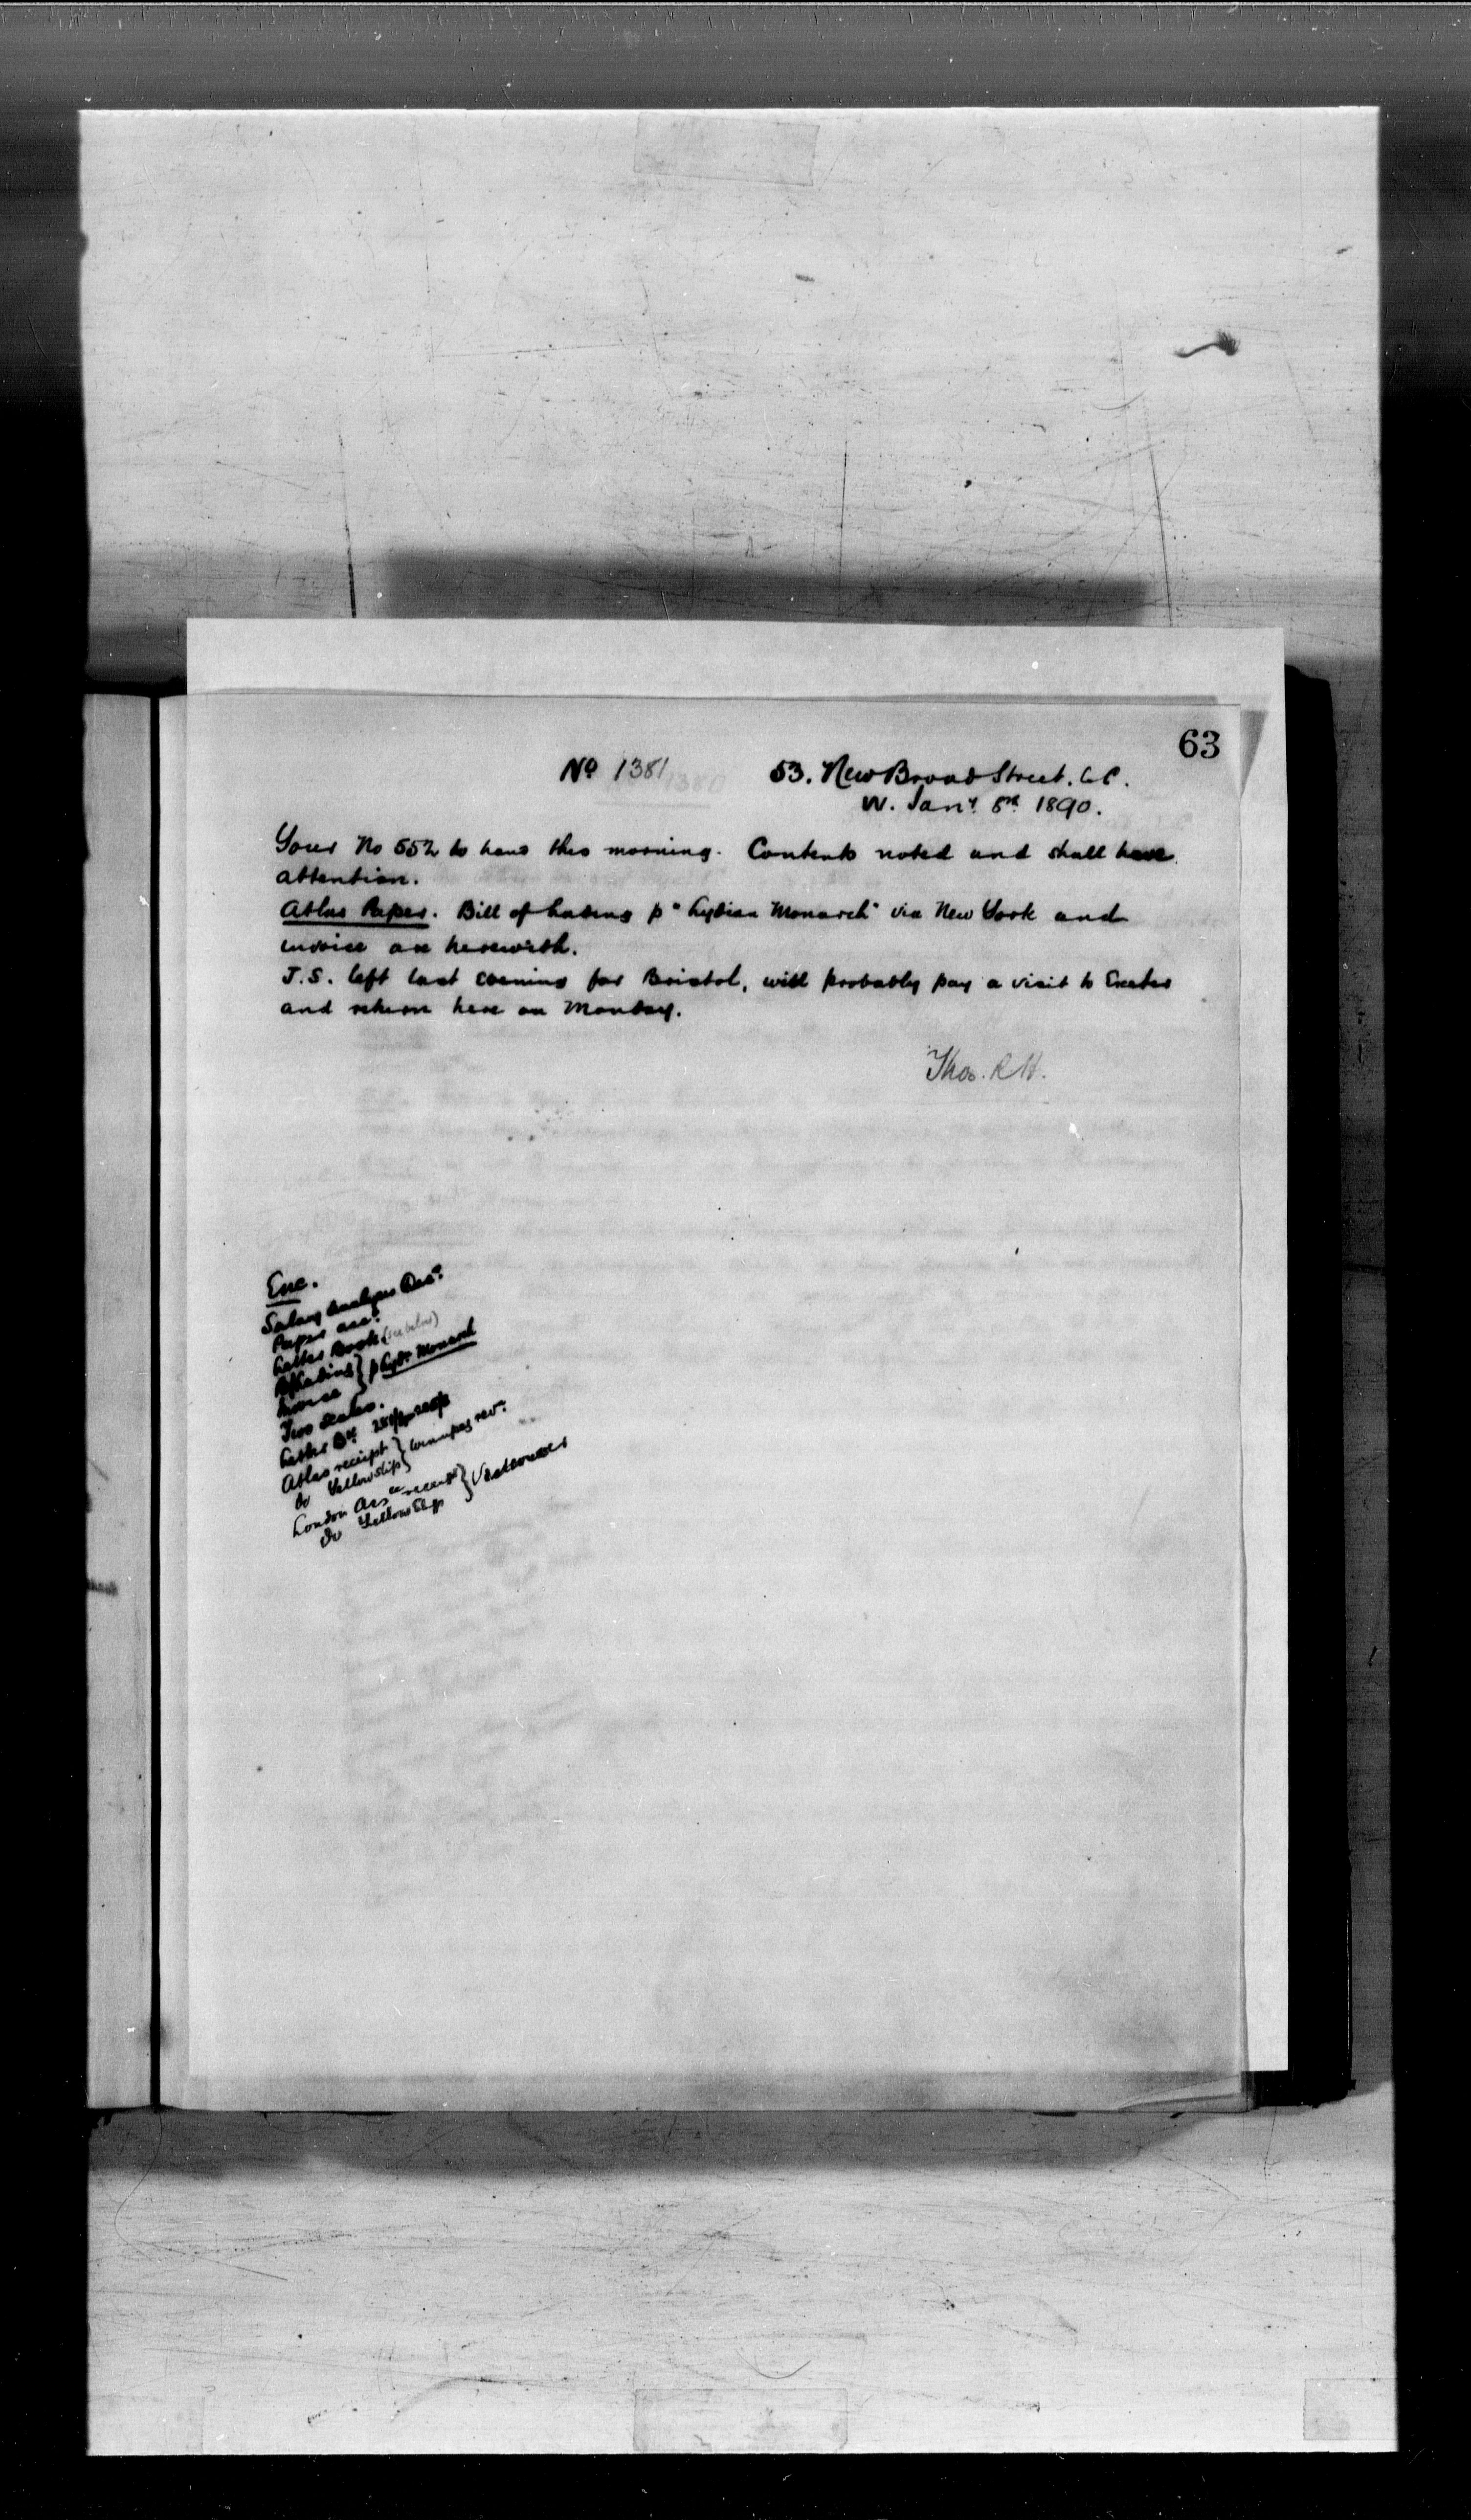 63
No 1381
53. New Broad Street. E C.
W. Jany. 8th 1890.
Your No 552 to hand this morning. Contents noted and shall have
attention.
Atlas Paper. Bill of Lading p "Lydian Monarch" via New York and
invoice are herewith.
J.S. left last evening for Bristol, will probably pay a visit to Exeter
and return here on Monday.
Thos. R H.
Enc.
Salary Analyses Dec.
Paper acc.
Letter Book (see below)
B/Lading } p Lydn Monarch
Invoice
Two scales.
Letter Bk
Atlas receipt } Winnipeg
do Yellow slip
London Assce receipt } Vancouver
do Yellow Slip